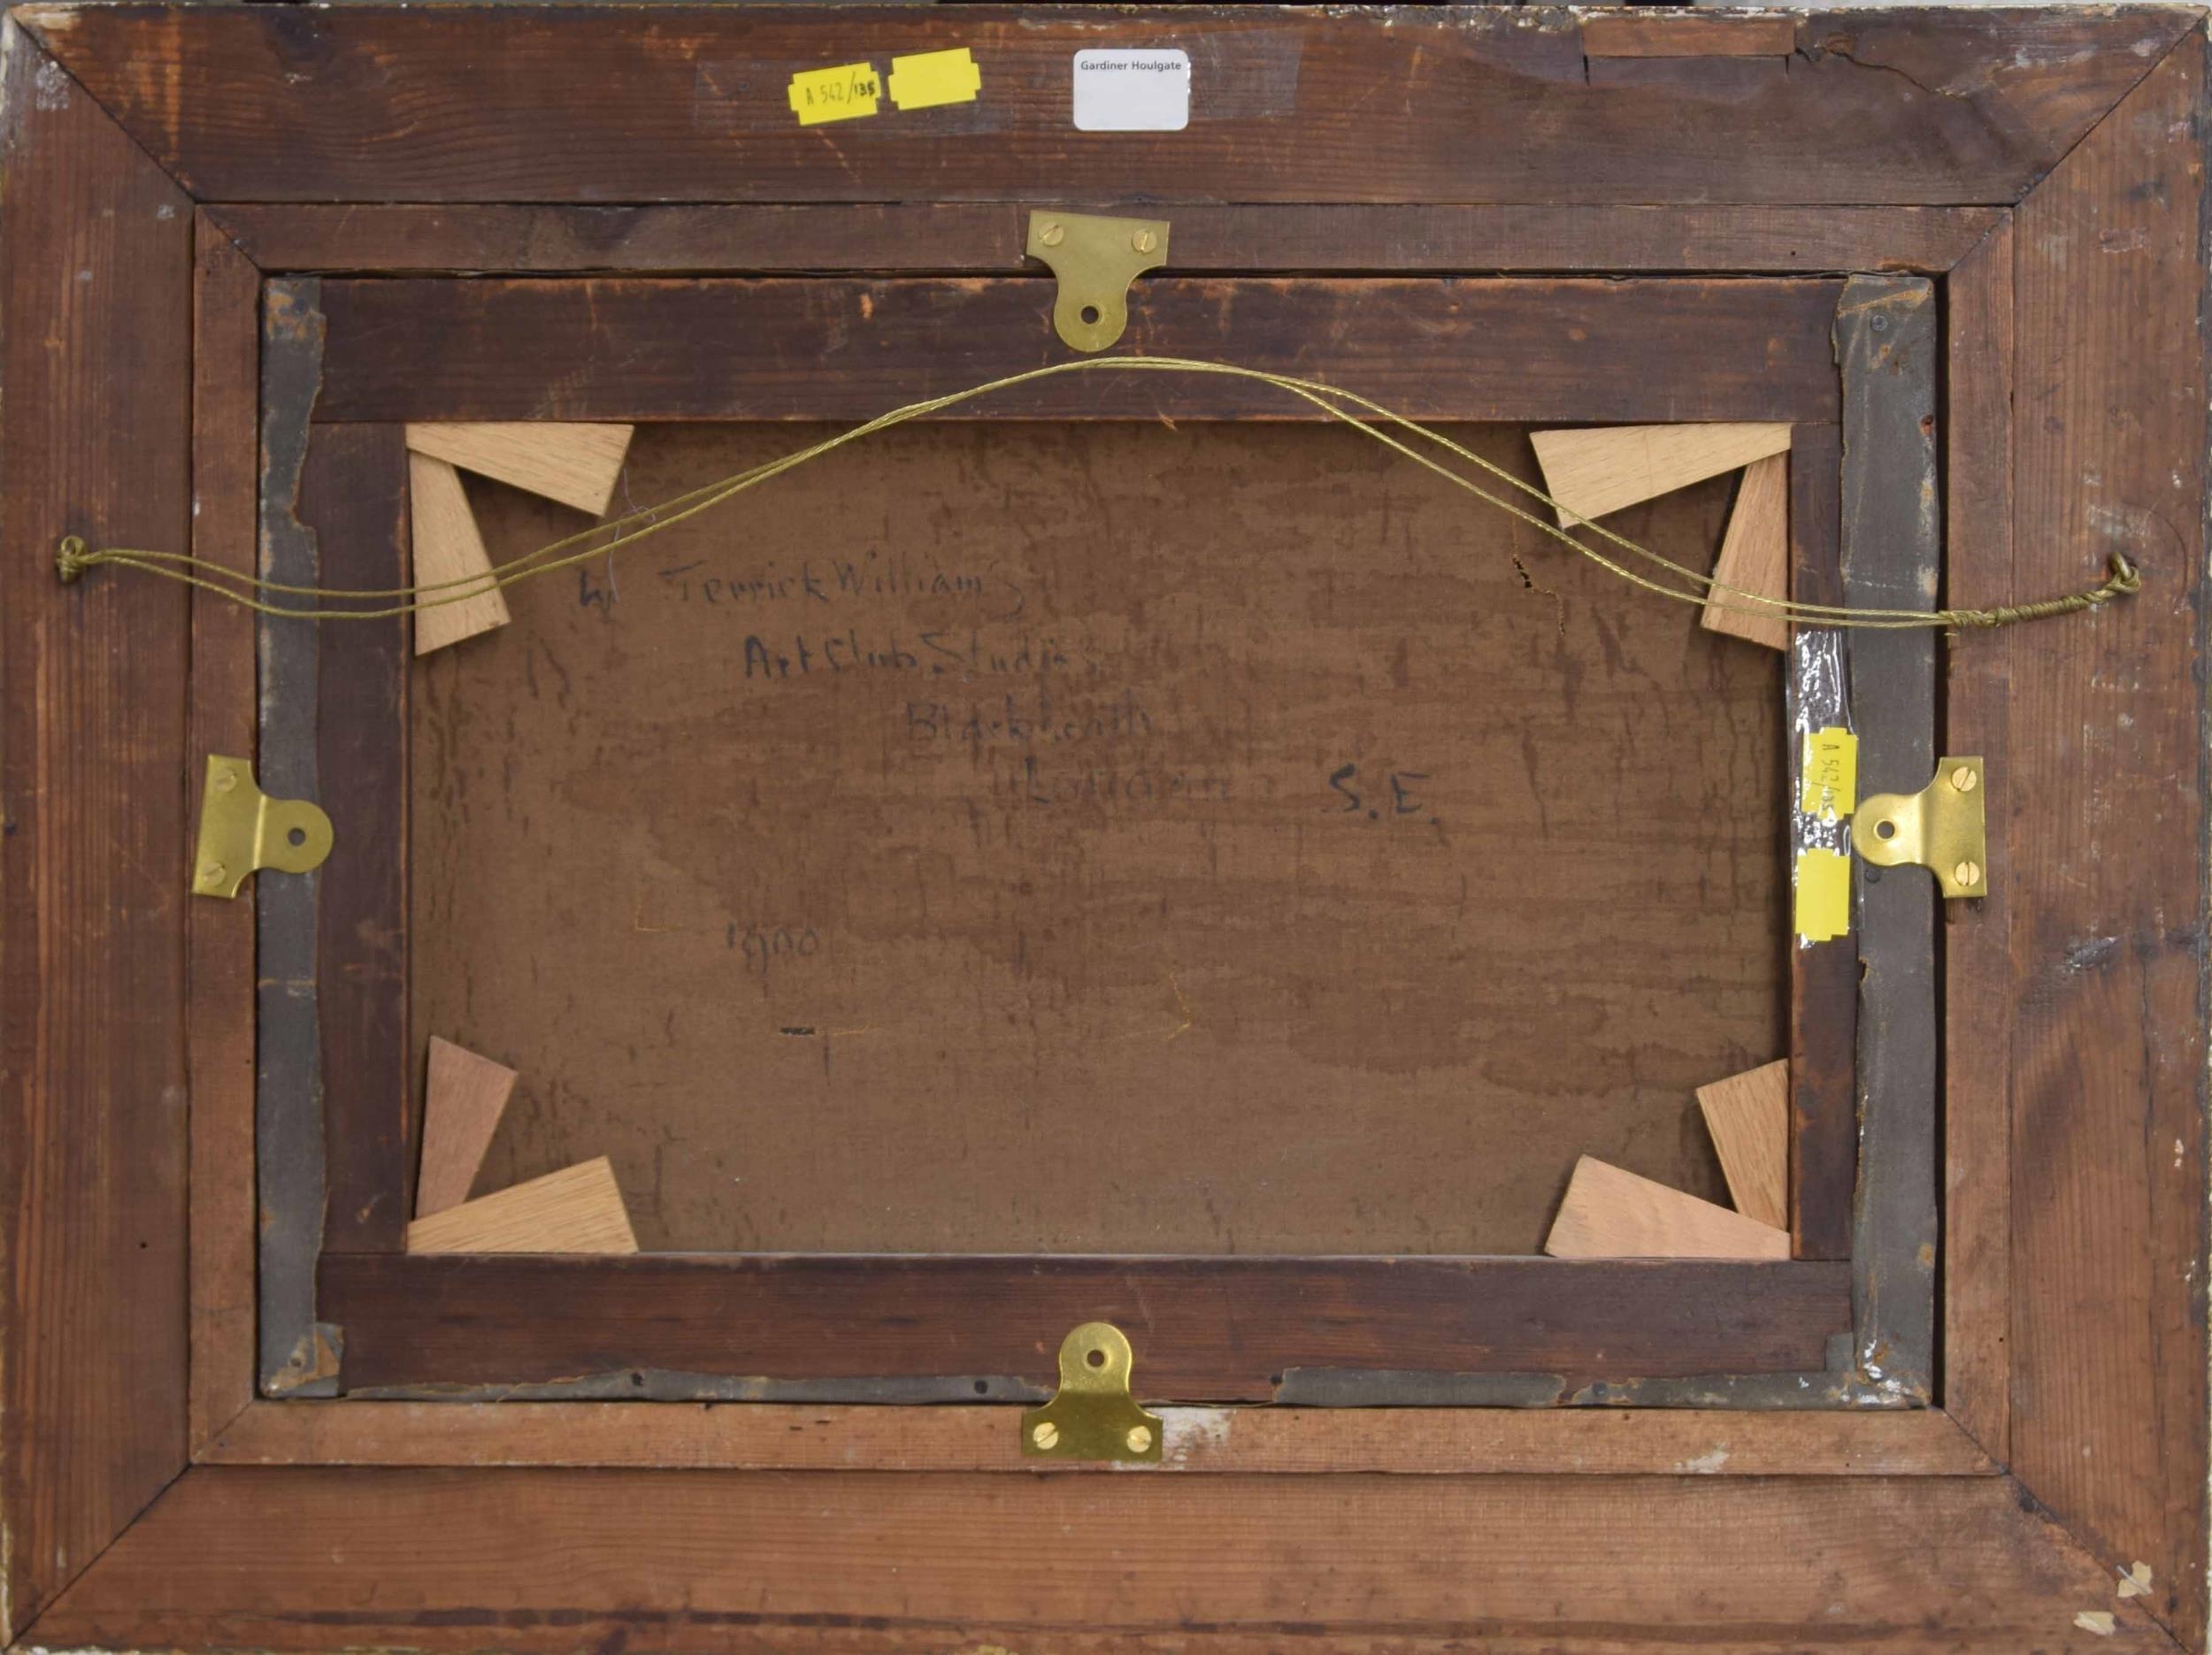 A 542/135
Gardiner Houlgate
Terrick Williams
Art Club Studios
Blackheath
London S.E.
A 542/135
1900